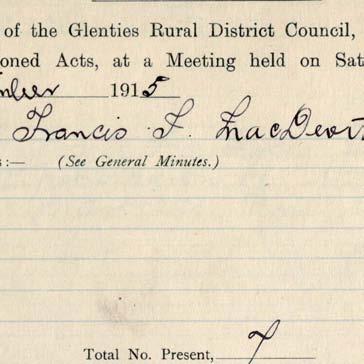 of the Glenties Rural District Council,
oned Acts, at a Meeting held on Sat
mber 1915
Francis J. MacDevit
s :— (See General Minutes.)
Total No. Present, 7